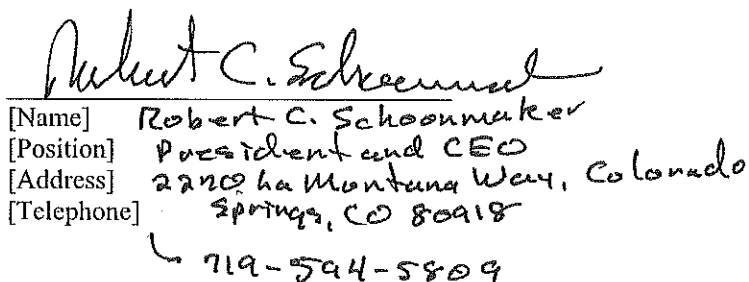 Robert C. Schoonmaker
[Name] Robert C. Schoonmaker
[Position] President and CEO
[Address] 2270 La Montana Way, Colorado
[Telephone] Springs, CO 80918
719-594-5809